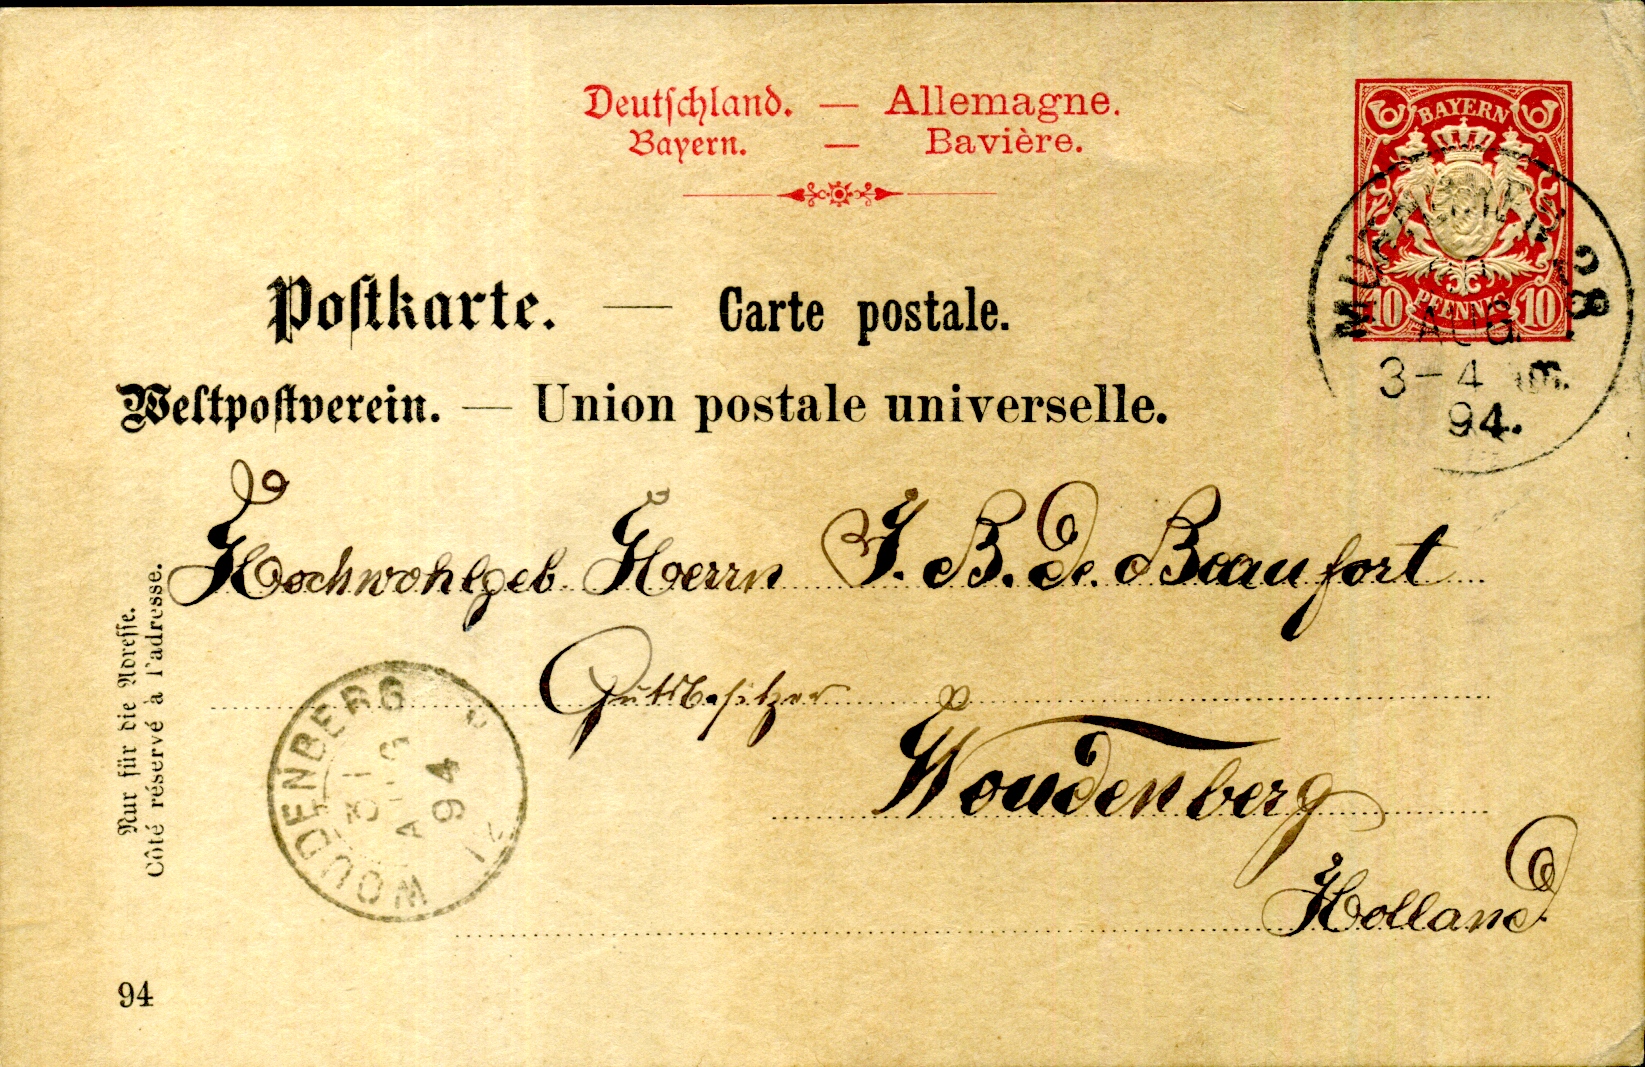 Deutschland. — Allemagne.
Bayern. — Bavière.
BAYERN
10 PFENNIG 10
AUG
3-4
94.
Postkarte. — Carte postale.
Weltpostverein. — Union postale universelle.
Hochwohlgeb. Herrn J. B. de Beaufort
Gutsbesitzer
Woudenberg
Holland
Nur für die Adresse.
Côté réservé à l'adresse.
WOUDENBERG
31
AUG
94
94